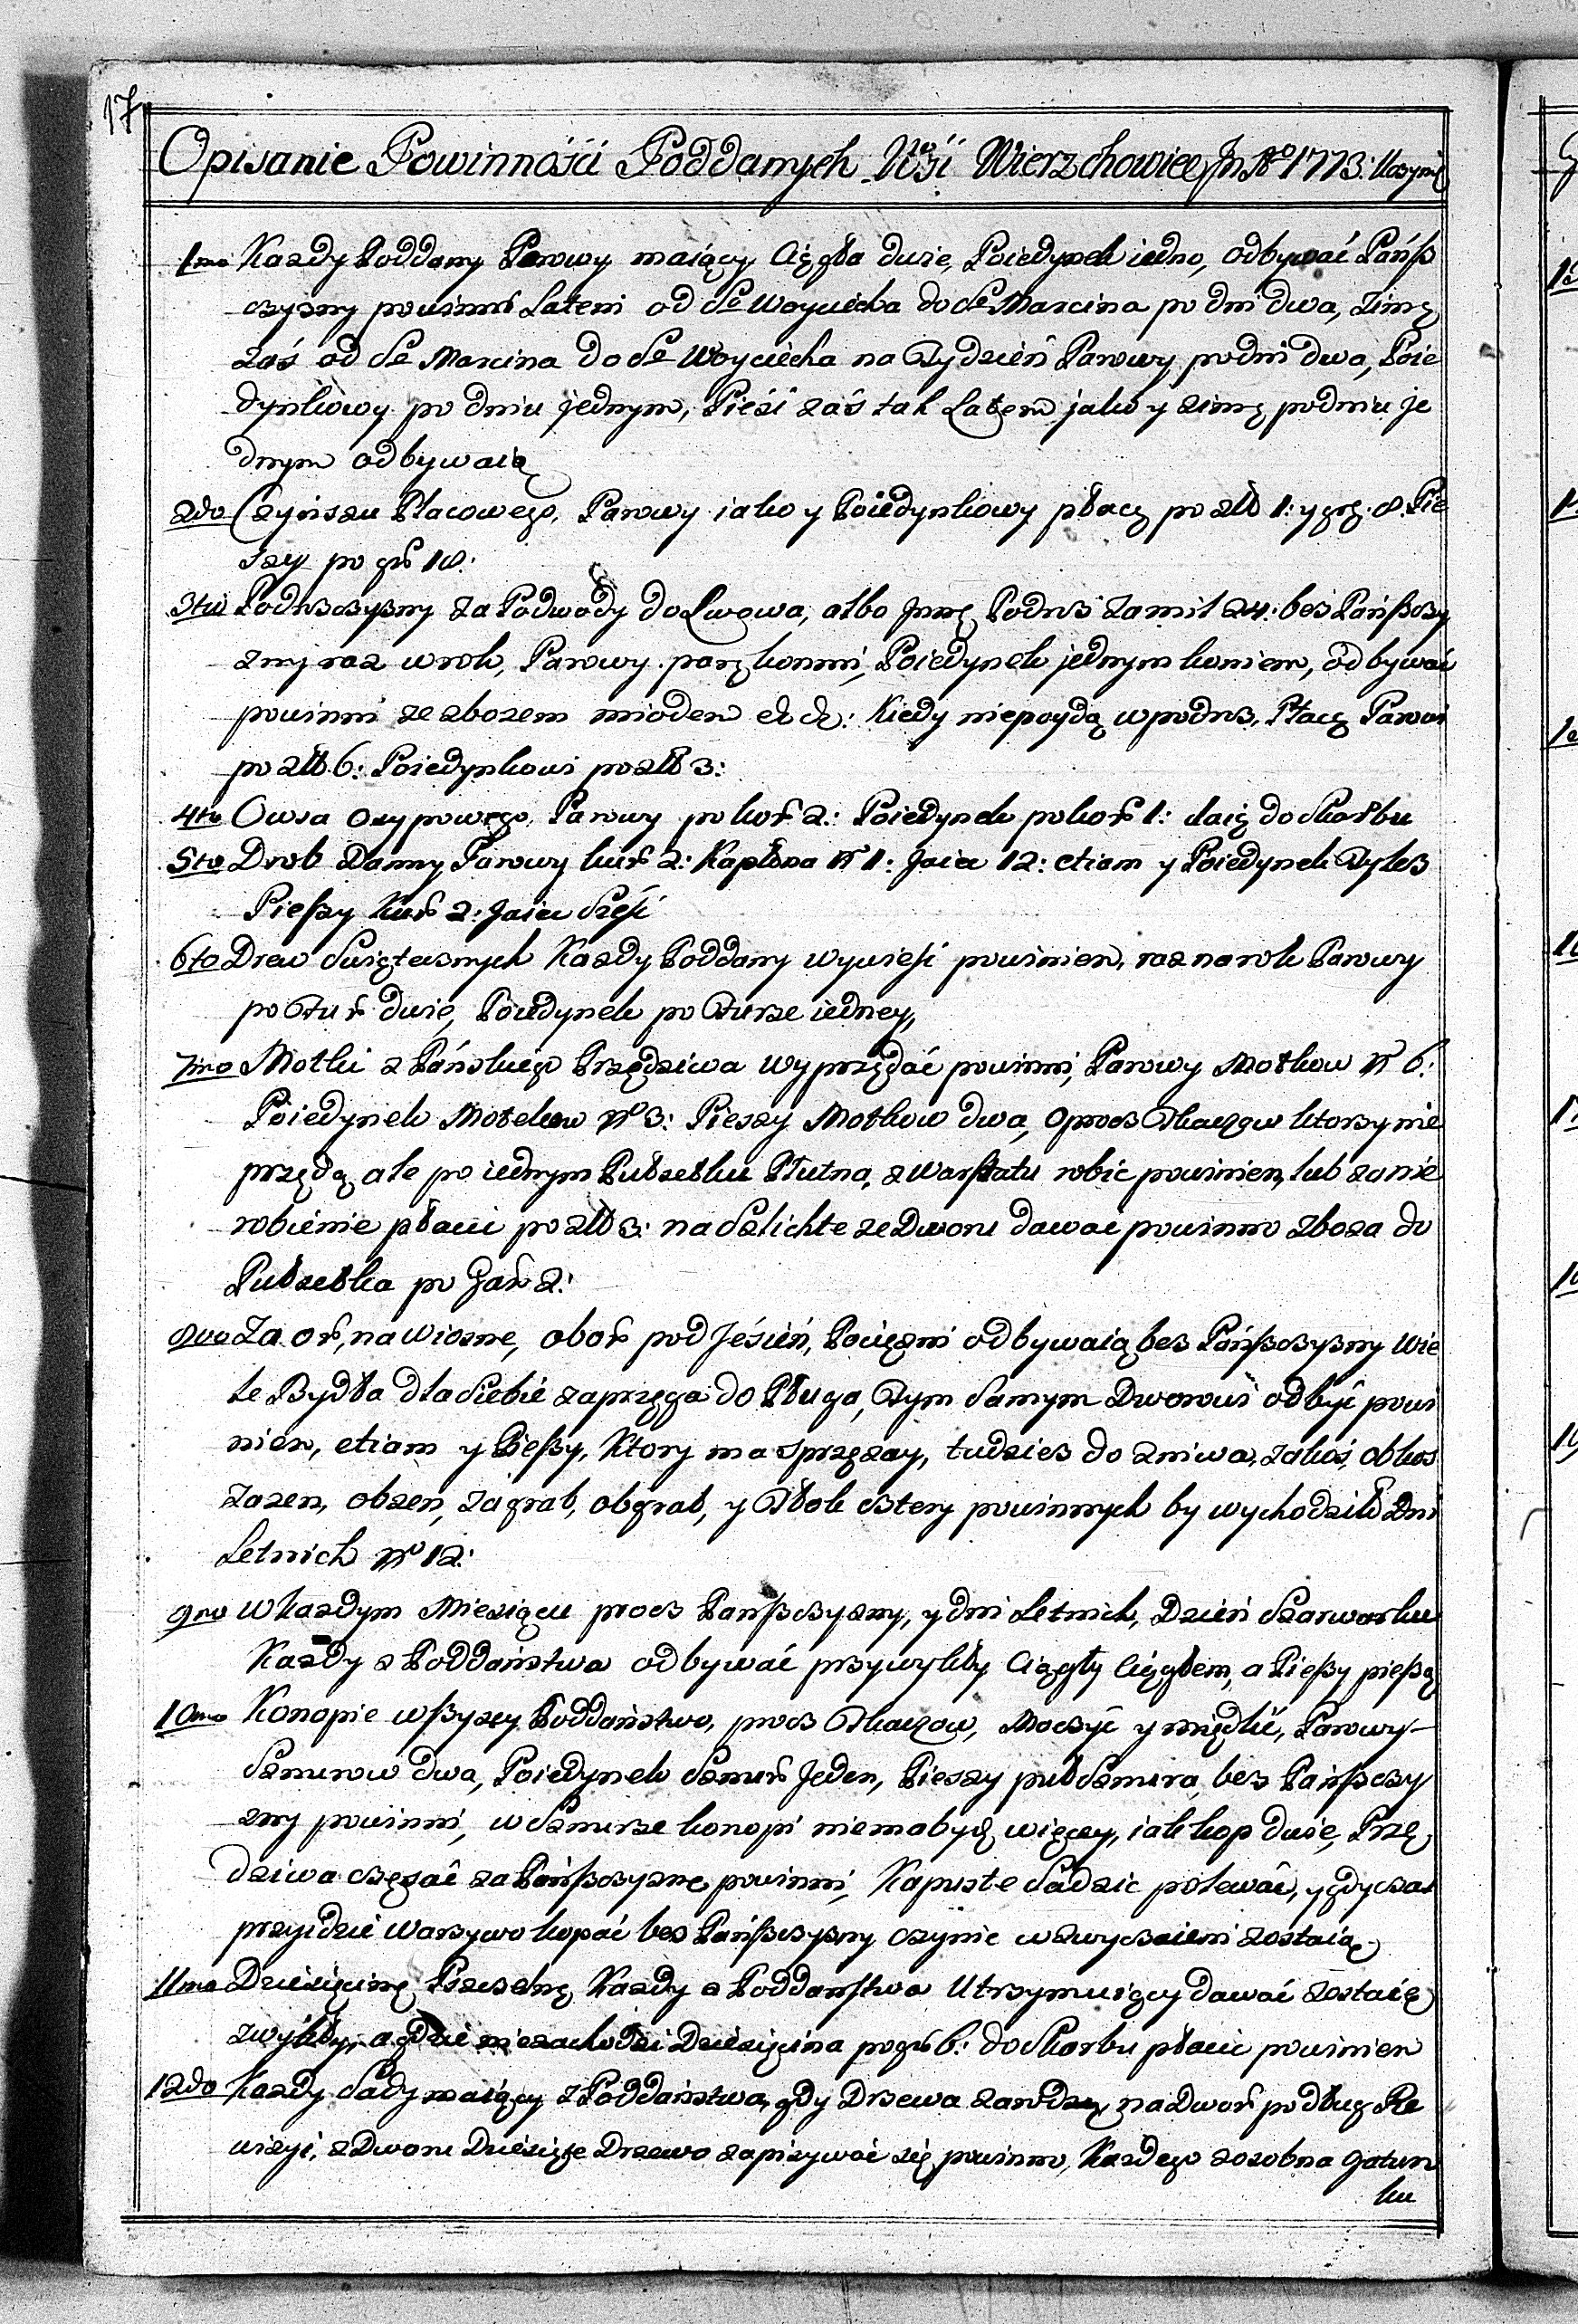 17
Opisanie Powinności Poddanych Wsi Wierzchowiec In Ao 1773. Uczynię
1mo Kazdy Poddany Parowy maiący Cięgła dwie, Poiedynek iedno, odbywać Pańß
czyzny powinni Latem od Sgo Woyciecha do Sgo Marcina po dni dwa, zimą
zaś od Sgo Marcina do Sgo Woyciecha na Tydzień Parowy po dni dwa, Poie
dynkowy po dniu jednym, Piesi zaś tak Latem jako y zimą po dniu je
dnym odbywaią
2do Czynszu Placowego, Parowy iako y Poiedynkowy płacą po złł 1: y grg. 8. Pie
szy po gr 18:
3tio Podrożczyzny za Podwody do Lwowa, albo Jnną Podroż za mil 24: bez Pańßczy
zny raz w rok, Parowy parą konmi, Poiedynek jednym koniem, odbywać
powinni ze zbozem miodem etc: Kiedy niepoydą w podroż, Płacą Parowi
po złł 6: Poiedynkowi po złł 3:
4to Owsa Osypowego, Parowy po kor 2: Poiedynek po kor 1: daią do Skarbu
5to Drob Danny Parowy kur 2: Kapłona No 1: Jaiec 12: etiam y Poiedynek Tyleż
Pießzy Kur 2: Jaiec Sześć
6to Drew Swiętecznych Kazdy Poddany wywieść powinien, raz na rok Parowy
po Fur dwie, Poiedynek po Furze iedney,
7mo Motki z Pańskiego Przędziwa wyprzędać powinni, Parowy Motkow No 6:
Poiedynek Motkow No 3: Pieszy Motkow dwa, oprocz Tkaczow ktorzy nie
przędą ale po iednym Pułsetku Płutna, z warßtatu robic powinien, lub za nie
robienie płacic po złł 3: na Szlichte ze Dworu dawac powinno zboza do
Pułsetka po Gar 2:
8vo Za or, na wiosne, obor pod Jesień, Pociężni odbywaią bez Pańßczyzny wie
le Bydła dla Siebie zaprzęga do Pługa, Tym samym Dworowi odbyć powi
nien, etiam y Pießy, Ktory ma sprzęzay, tudziez do zniwa, zakos, obkos
zazen, obzen, zagrab, obgrab, y Tłok cztery powinnych by wychodził Dni
Letnich No 12:
9no W kazdym Miesiącu procz Pańßczyzny, y dni Letnich, Dzień Szarwarku
Kazdy z Poddaństwa odbywać przywykły Ciągły Cięgłem, a Pießy pießo
10mo Konopie wßyscy Poddaństwo, procz Tkaczow, Moczyć y międlić, Parowy
Sznurow dwa, Poiedynek Sznur Jeden, Pieszy puł Sznura, bez Pańßczy
zny powinni, w Sznurze konopi niema bydź więcey, iak kop dwie, Przę
dziwa czesać za Pańßczyzne powinni, Kapuste Sadzic polewać, y gdy czas
przyidzie Warzywo kopać bez Pańßczyzny czynic w zwyczaieni zostaią
11mo Dziesięcinę Pszczelną Kazdy z Poddańßtwa Utrzymuiący dawać zostaią
zwykły, a gdzie niezachodzi Dziesięcina po gr 6: do Skarbu płacic powinien
12do Kazdy Sady maiący z Poddaństwa, gdy Drzewa zarodzą na Dwor podług Re
wizyi, z Dworu Dziesiąte Drzewo zapisywać się powinno, Kazdego zosobna Gatun
ku